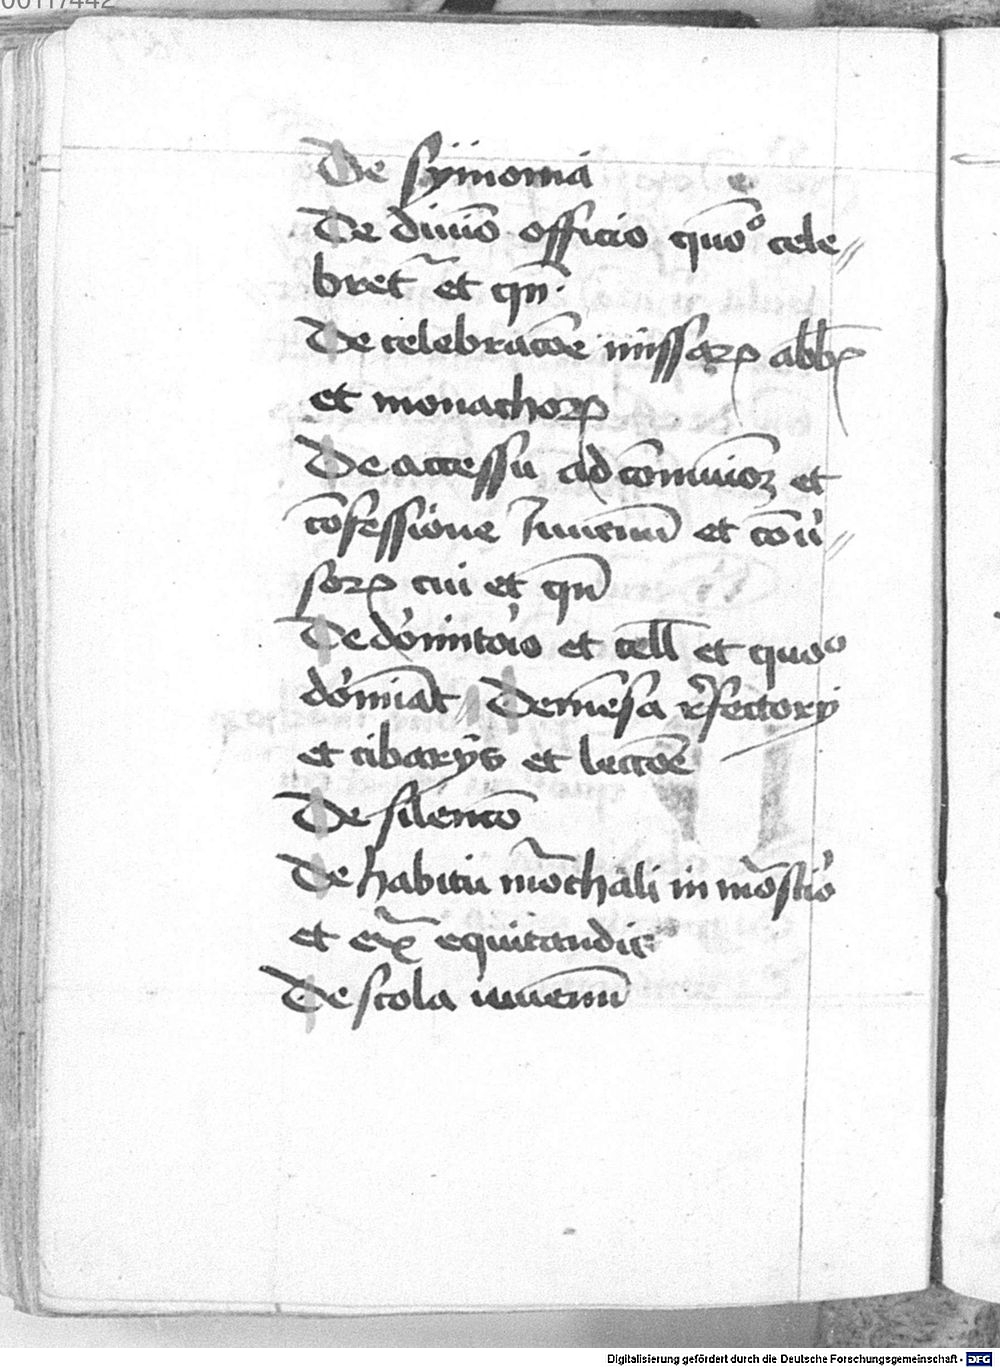 00117442
De symonia
De diuīo officio quō° cele⸗
bret᷑ et qn̄.
De celebracōe missaꝝ abb̄
et monachoꝝ
De accessu ad cōmuīoꝫ et
cōfessione Iuuenū et cōu᷑⸗
soꝝ cui et qn̄
De dormitorio et cell̄ et quo°
dormiāt De mēsa refectorij
et cibarijs et lectōe
De silencō
De habitu mōchali in mōst᷑io
et ex̄ equitandis
De scola iuuenū
Digitalisierung gefördert durch die Deutsche Forschungsgemeinschaft - DFG